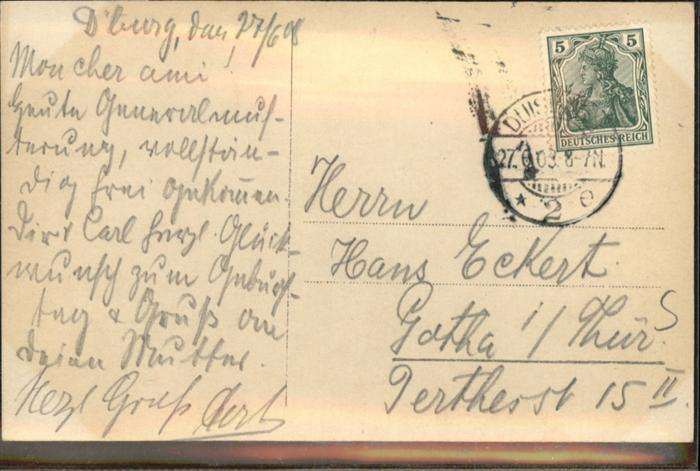 D'burg, den 27/6 08
Moncher ami!
Heute Generalmus-
terung, vollstän-
dig frei gekommen.
Dir Carl herzl. Glück-
wunsch zum Geburts-
tag & Gruß an
deine Mutter.
Herzl Gruß
5 5
DEUTSCHES REICH
DUIS
27.6.08.8-7N.
* 2 e
Herrn
Hans Eckert
Gotha i/Thür.
Perthesst 15 II